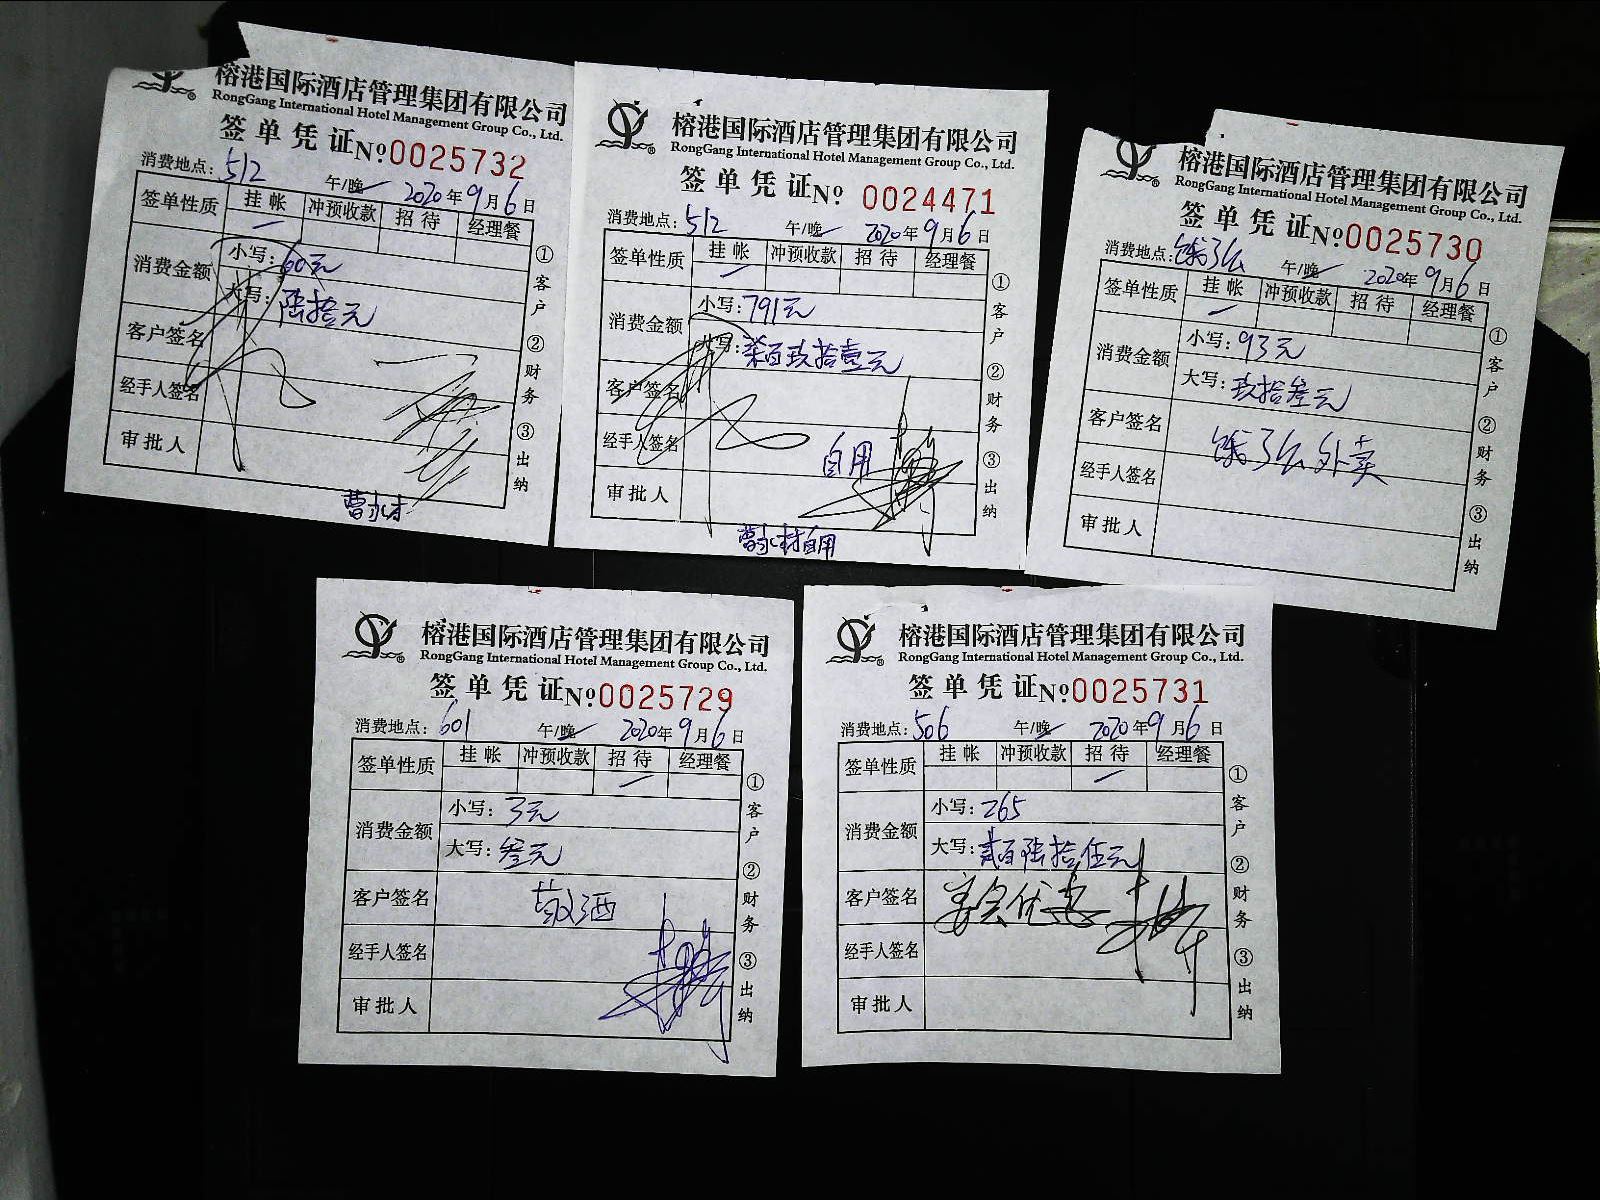 榕港国际酒店管理集团有限公司
RongGang International Hotel Management Group Co., Ltd.
签单凭证№0025732
消费地点：512 午/晚 2020年9月6日
签单性质 挂帐 冲预收款 招待 经理餐
消费金额 小写：60元
大写：陆拾元
客户签名
经手人签名
审批人
①客户 ②财务 ③出纳
曹永村
榕港国际酒店管理集团有限公司
RongGang International Hotel Management Group Co., Ltd.
签单凭证№ 0024471
消费地点：512 午/晚 2020年9月6日
签单性质 挂帐 冲预收款 招待 经理餐
消费金额 小写：791元
大写：柒百玖拾壹元
客户签名
经手人签名 自用
审批人
①客户 ②财务 ③出纳
曹永村自用
榕港国际酒店管理集团有限公司
RongGang International Hotel Management Group Co., Ltd.
签单凭证№0025730
消费地点：饿了么 午/晚 2020年9月6日
签单性质 挂帐 冲预收款 招待 经理餐
消费金额 小写：93元
大写：玖拾叁元
客户签名 饿了么外卖
经手人签名
审批人
①客户 ②财务 ③出纳
榕港国际酒店管理集团有限公司
RongGang International Hotel Management Group Co., Ltd.
签单凭证№0025729
消费地点：601 午/晚 2020年9月6日
签单性质 挂帐 冲预收款 招待 经理餐
消费金额 小写：3元
大写：叁元
客户签名 敬酒
经手人签名
审批人
①客户 ②财务 ③出纳
榕港国际酒店管理集团有限公司
RongGang International Hotel Management Group Co., Ltd.
签单凭证№0025731
消费地点：506 午/晚 2020年9月6日
签单性质 挂帐 冲预收款 招待 经理餐
消费金额 小写：265
大写：贰百陆拾伍元
客户签名
经手人签名
审批人
①客户 ②财务 ③出纳